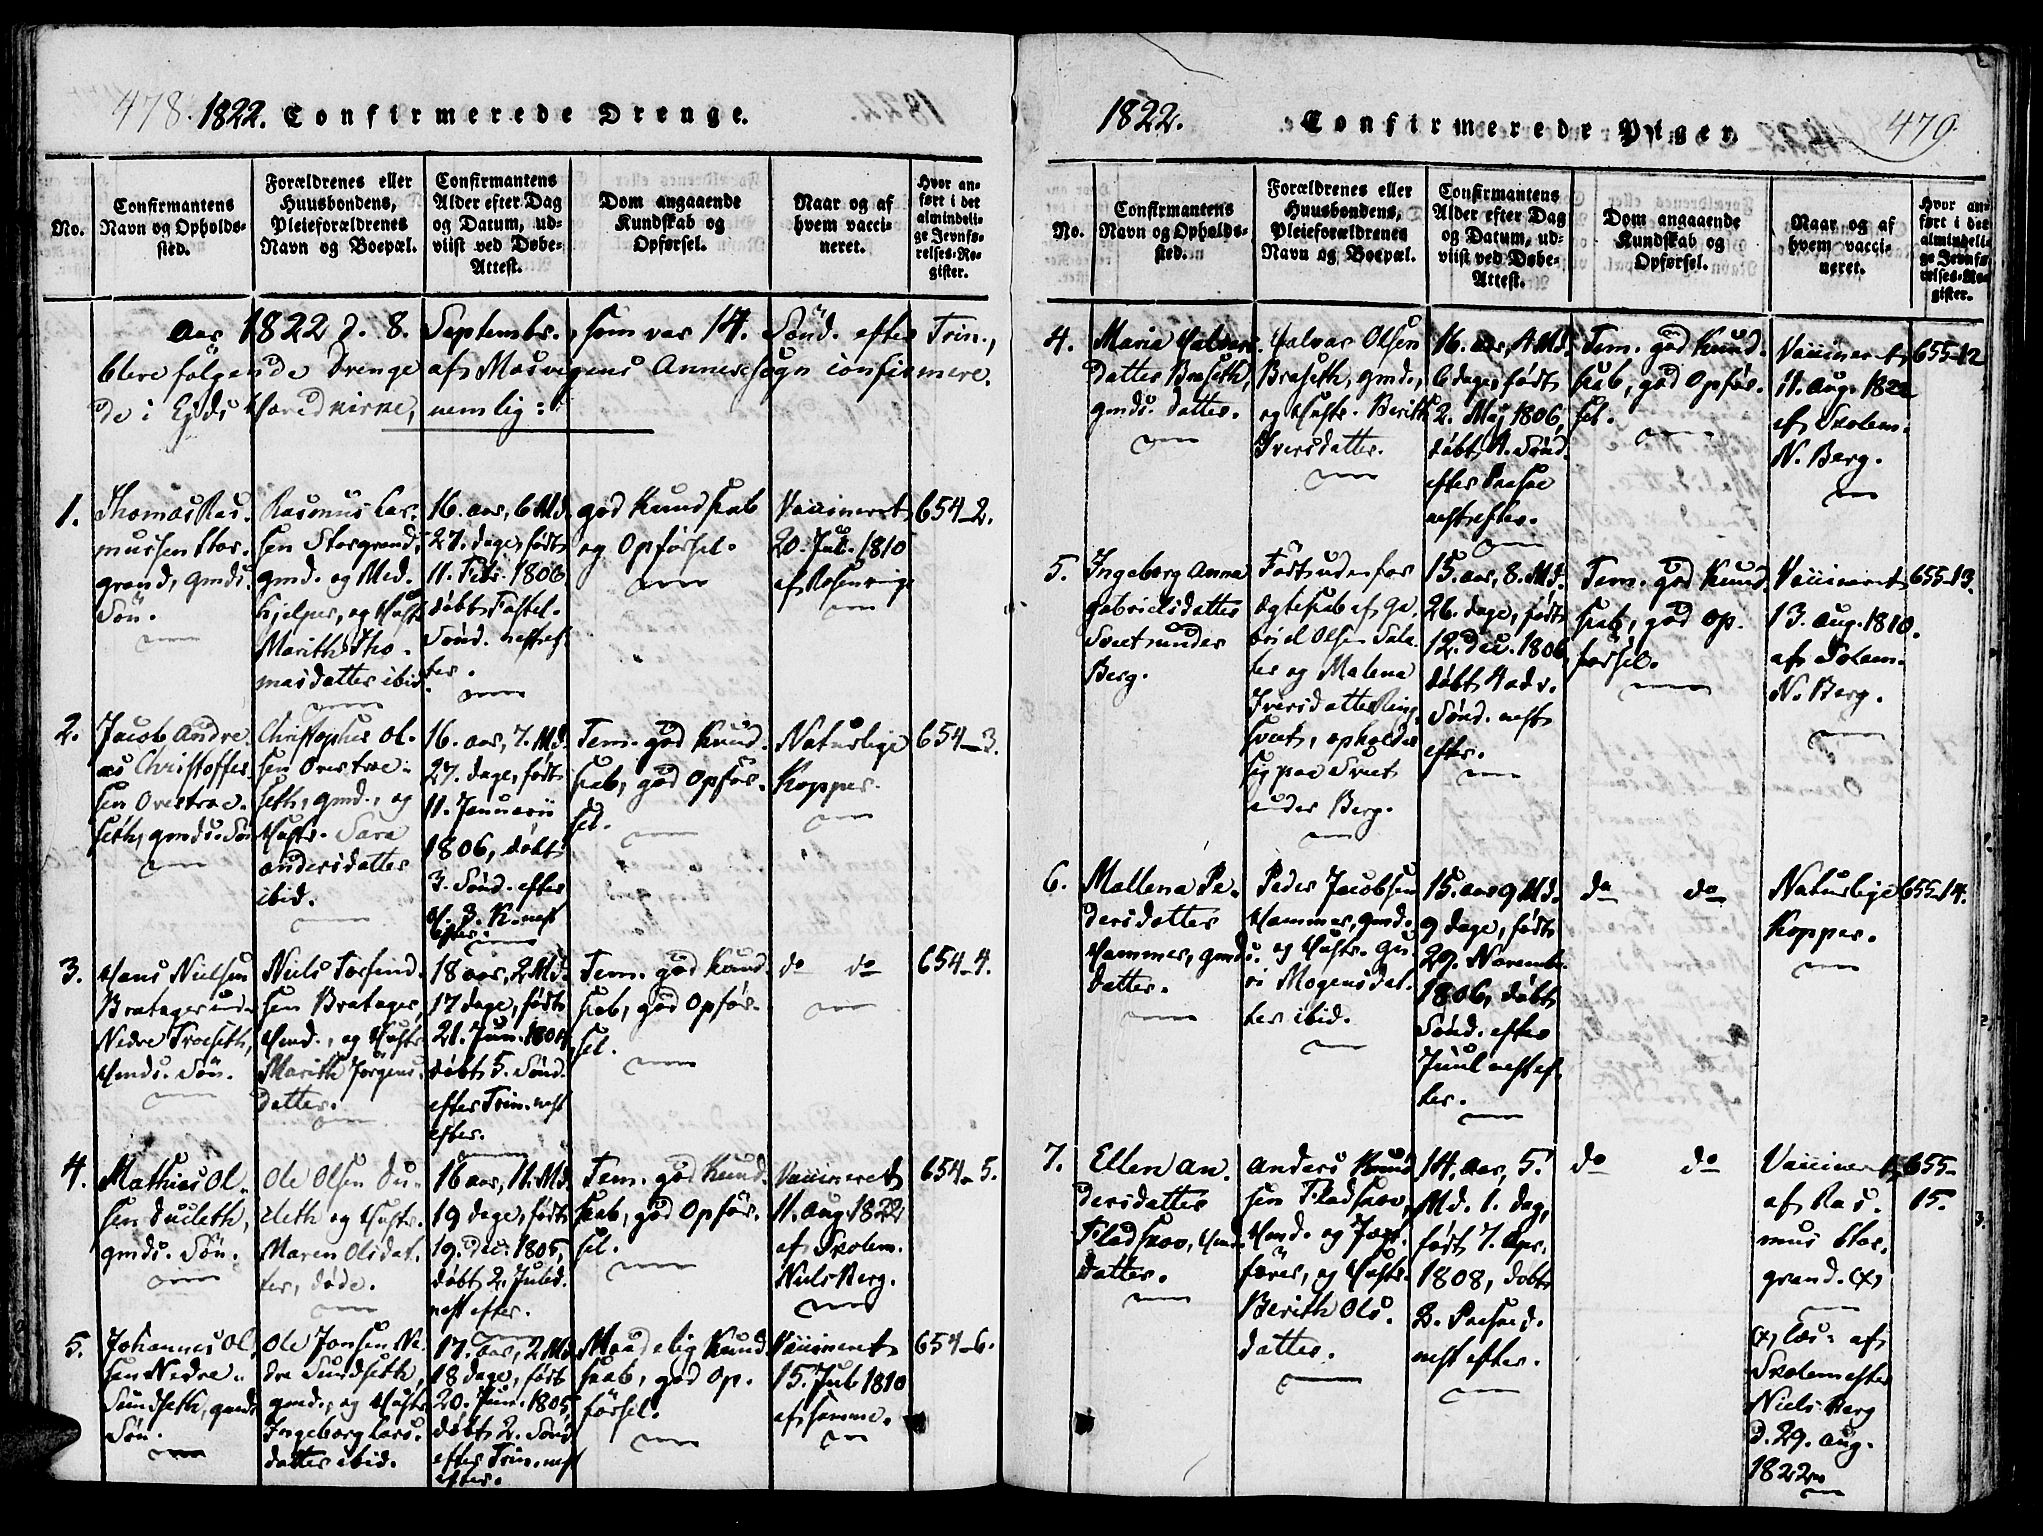 478. 1822. Confirmerede Drenge.
No.
Confirmantens
Navn og Opholds-
sted.
Forældrenes eller
Huusbondens,
Pleieforældrenes
Navn og Boepæl.
Confirmantens
Alder efter Dag
og Datum, ud-
viist ved Døbe-
Attest.
Dom angaaende
Kundskab og
Opførsel.
Naar og af
hvem vacci-
neret.
Hvor an-
ført i det
almindeli-
ge Jevnfø-
relses-Re-
gister.
Aar 1822 d. 8. Septembr., som var 14. Sönd. efter Trin.,
bleve følgende Drenge af Annexsogn confirmere-
de i kirke, nemlig:
1.
Thomas Ras-
mussen Stor-
grand, gmds.
Sön.
Rasmus Lar-
sen Storgrand,
gmd. og Med-
hjelper, og Hustr.
Marith Tho-
masdatter ibid.
16. aar, 6 Md.
27. dage, født
11. Febr. 1806
døbt Fastel.
Sönd. nest ef-
ter.
god Kundskab
og Opförsel.
Vaccineret
20. Jul. 1810
af Rosenvinge
654-2.
2.
Jacob Andre-
as Christoffer-
sen Overtroe-
seth, gmds. Sön
Christopher Ol-
sen Overtroe-
seth, gmd., og
Hustr. Sara
Andersdatter
ibid.
16. aar, 7. Md.
27. dage, født
11. Januarii
1806, døbt
3. Sönd. efter
H. 3. K. nest
efter.
Tem. god Kund-
skab, god Opför-
sel.
Naturlige
Kopper.
654-3.
3.
Hans Nielsen
Bratager und.
Nedre Troeseth,
Hmds. Sön.
Niels Torfind-
sen Bratager,
Hmd., og Hustr.
Marith Jörgens-
datter.
18 aar, 2 Md.
17 dage, født
21. Jun. 1804
døbt 5. Sönd.
efter Trin. nest
efter.
Tem. god Kund-
skab, god Opför-
sel.
do do
654-4.
4.
Mathias Ol-
sen
gmds. Sön.
Ole Olsen Du-
cleth og Hustr.
Maren Olsdat-
ter, døde.
16 aar, 11. Md.
19 dage, født
19. Dec. 1805,
døbt 2. Juled.
nest efter.
Tem. god Kund-
skab, god Opför-
sel.
Vaccineret
11. Aug. 1822
af Skolem.
Niels Berg.
654-5.
5.
Johannes Ol-
sen Nedre-
Sundseth, gmds
Sön.
Ole Jonsen Ne-
dre Sundseth,
gmd., og Hustr.
Ingeborg Lars-
datter ibid.
17. aar, 2 Md.
18 dage, født
20. Jun. 1805,
døbt 2. Sönd
efter Trin. nest
efter.
Maadelig Kund-
skab, god Op-
försel.
Vaccineret
15. Jul 1810
af samme.
654-6.
1822. Confirmerede Piger. 479.
No.
Confirmantens
Navn og Opholds-
sted.
Forældrenes eller
Huusbondens,
Pleieforældrenes
Navn og Boepæl.
Confirmantens
Alder efter Dag
og Datum, ud-
viist ved Døbe-
Attest.
Dom angaaende
Kundskab og
Opførsel.
Naar og af
hvem vacci-
neret.
Hvor an-
ført i det
almindeli-
ge Jevnfø-
relses-Re-
gister.
4.
Maria Halvors-
datter Braseth,
gmds. datter.
Halvor Olsen
Braseth, gmd.,
og Hustr. Berith
Iversdatter.
16. aar, 4 Md.
6 dage, født
2. Maj 1806,
døbt 4. Sönd.
efter Paaske
nest efter.
Tem. god Kund-
skab, god Opför-
sel.
Vaccineret
11. Aug. 1822
af Skolem.
N. Berg.
655-12
5.
Ingeborg Anna
Gabrielsdatter
Svet under
Berg.
Født udenfor
Ægteskab af Ga-
briel Olsen
og Malena
Iversdatter Ring-
svet, opholder
sig paa Svet
under Berg.
15. aar, 8. Md.
26. dage, født
12. Dec. 1806,
døbt 4 Adv.
Sönd. nest
efter.
Tem. god Kund-
skab, god Op-
försel.
Vaccineret
13. Aug. 1810.
af Solem.
N. Berg.
655-13.
6.
Mallena Pe-
dersdatter
Hammer, gmds.
datter.
Peder Jacobsen
Hammer, gmd.
og Hustr. Gu-
ri Mogensdat-
ter ibid.
15. aar 9 Md.
9 dage, født
29. Novembr.
1806, døbt
Sönd. efter
Juul nest ef-
ter.
do do
Naturlige
Kopper.
655-14.
7.
Ellen An-
dersdatter
Fladskov, Hmds.
datter.
Anders Knud-
sen Fladskov,
Hmd. og Jagt-
förer, og Hustr.
Berith Ols-
datter.
14. aar, 5.
Md. 1. dag,
født 7. Apr.
1808, døbt
2. Paasked.
nest efter.
do do
Vaccineret
af Ras-
mus Stor-
grand. (x)
(x) læs: af
Skolemester
Niels Berg
d. 29. Aug.
1822
655-
15.